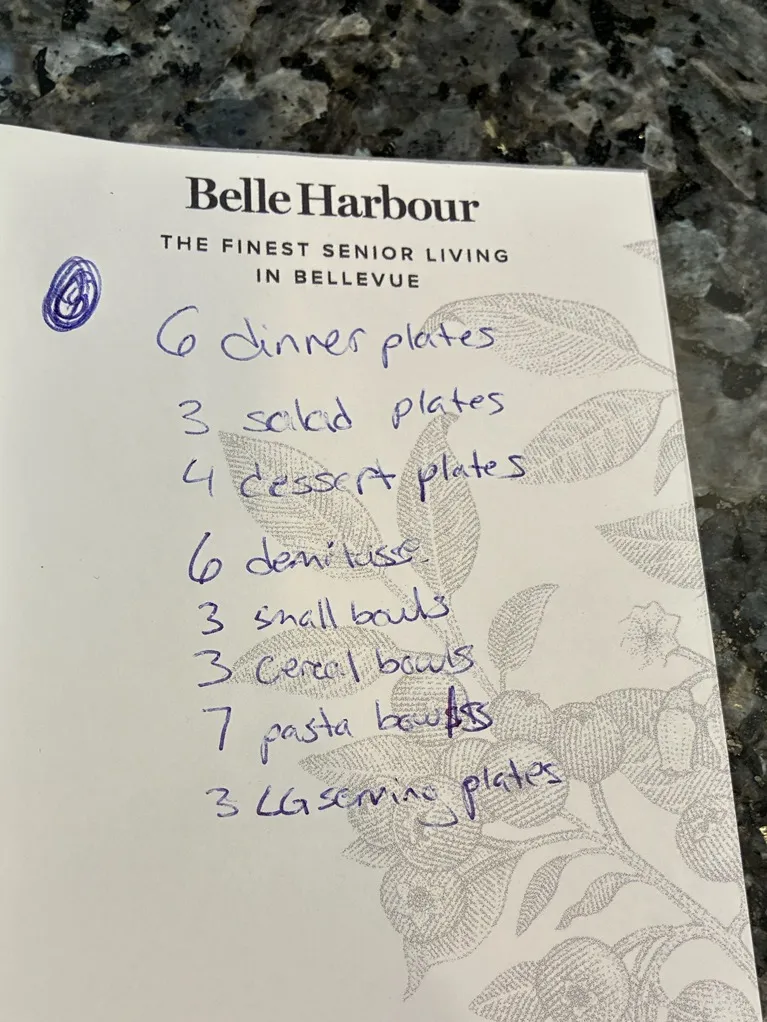 Belle Harbour
THE FINEST SENIOR LIVING
IN BELLEVUE
6 dinner plates
3 salad plates
4 dessert plates
6 demitasse
3 small bowls
3 cereal bowls
7 pasta bowls
3 LG serving plates